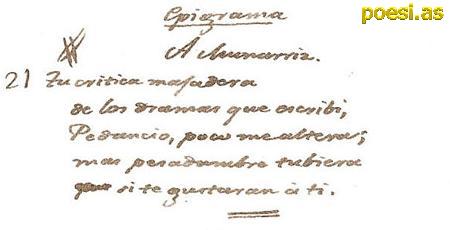 poesi.as
Epigrama
A Munarriz.
21 Tu critica majadera
de los dramas que escribi,
Pedancio, poco me altera;
mas pesadumbre tubiera
si te gustaran à ti.